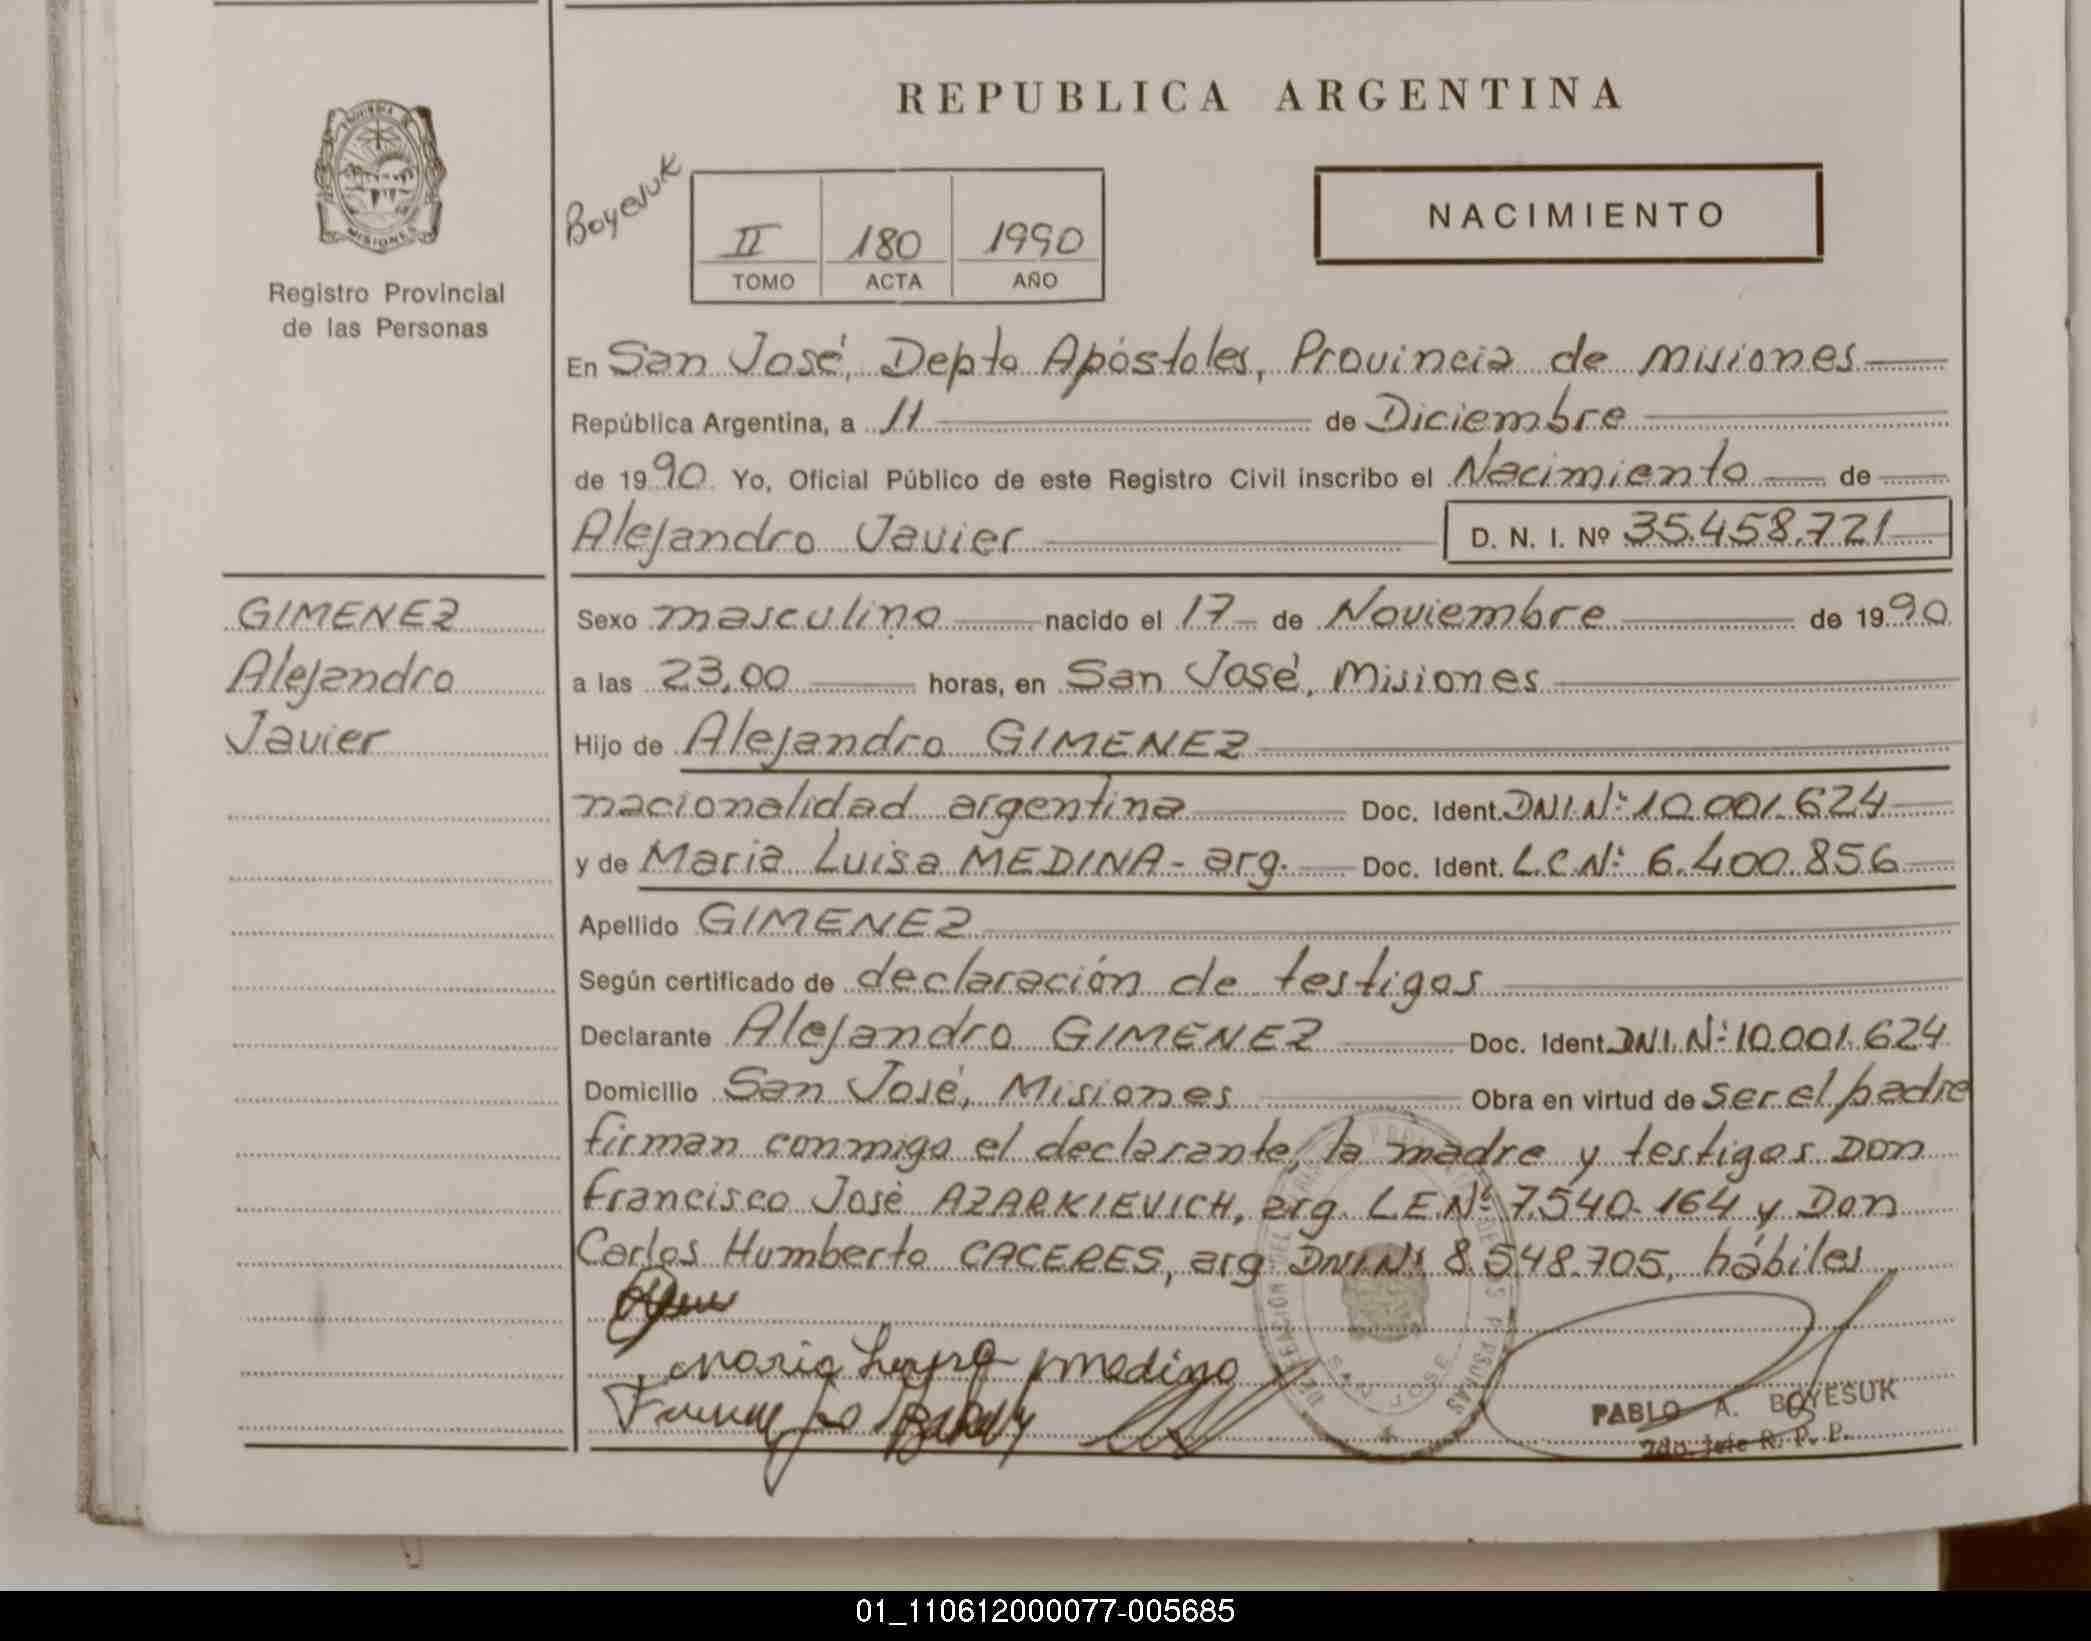 REPUBLICA ARGENTINA
PROVINCIA DE
MISIONES
Registro Provincial
de las Personas
Boyesuk
II 180 1990
TOMO ACTA AÑO
NACIMIENTO
En San José, Depto Apóstoles, Provincia de Misiones
República Argentina, a 11 de Diciembre
de 1990. Yo, Oficial Público de este Registro Civil inscribo el Nacimiento de
Alejandro Javier D. N. I. Nº 35.458.721
GIMENEZ
Alejandro
Javier
Sexo masculino nacido el 17 de Noviembre de 1990
a las 23,00 horas, en San José, Misiones
Hijo de Alejandro GIMENEZ
nacionalidad argentina Doc. Ident. DNI.Nº 10.001.624
y de Maria Luisa MEDINA - arg. Doc. Ident. L.C.Nº 6.400.856
Apellido GIMENEZ
Según certificado de declaración de testigos
Declarante Alejandro GIMENEZ Doc. Ident. DNI.Nº 10.001.624
Domicilio San José, Misiones Obra en virtud de ser el padre
firman conmigo el declarante, la madre y testigos Don
Francisco José AZARKIEVICH, arg. L.E.Nº 7.540.164 y Don
Carlos Humberto CACERES, arg DNI Nº 8.548.705, hábiles
Maria Luisa medina
SAN JOSE
PABLO A. BOYESUK
2do. Jefe R. P. P.
01_110612000077-005685